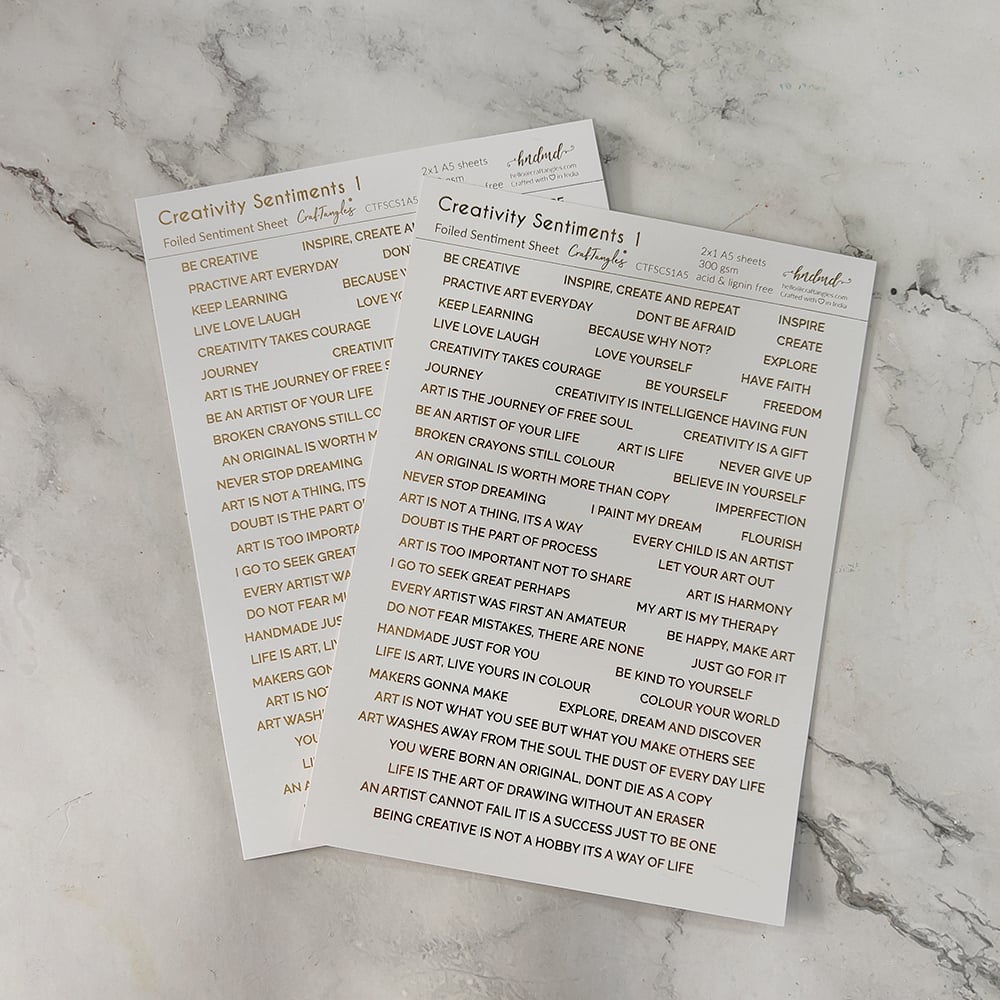 Creativity Sentiments 1
Foiled Sentiment Sheet CrafTangles CTFSCS1A5
2x1 A5 sheets
gsm
free
hndmd
hello@craftangles.com
Crafted with ♡ in India
BE CREATIVE INSPIRE, CREATE
PRACTIVE ART EVERYDAY DON
KEEP LEARNING BECAUSE
LIVE LOVE LAUGH LOVE
CREATIVITY TAKES COURAGE
JOURNEY CREATIVIT
ART IS THE JOURNEY OF FREE S
BE AN ARTIST OF YOUR LIFE
BROKEN CRAYONS STILL CO
AN ORIGINAL IS WORTH M
NEVER STOP DREAMING
ART IS NOT A THING, ITS
DOUBT IS THE PART O
ART IS TOO IMPORTA
I GO TO SEEK GREAT
EVERY ARTIST WA
DO NOT FEAR MI
HANDMADE JUS
LIFE IS ART, LI
MAKERS GON
ART IS NO
ART WASH
YOU
LI
AN A
Creativity Sentiments 1
Foiled Sentiment Sheet CrafTangles CTFSCS1A5
2x1 A5 sheets
300 gsm
acid & lignin free
hndmd
hello@craftangles.com
Crafted with ♡ in India
BE CREATIVE INSPIRE, CREATE AND REPEAT INSPIRE
PRACTIVE ART EVERYDAY DONT BE AFRAID CREATE
KEEP LEARNING BECAUSE WHY NOT? EXPLORE
LIVE LOVE LAUGH LOVE YOURSELF HAVE FAITH
CREATIVITY TAKES COURAGE BE YOURSELF FREEDOM
JOURNEY CREATIVITY IS INTELLIGENCE HAVING FUN
ART IS THE JOURNEY OF FREE SOUL CREATIVITY IS A GIFT
BE AN ARTIST OF YOUR LIFE ART IS LIFE NEVER GIVE UP
BROKEN CRAYONS STILL COLOUR BELIEVE IN YOURSELF
AN ORIGINAL IS WORTH MORE THAN COPY IMPERFECTION
NEVER STOP DREAMING I PAINT MY DREAM FLOURISH
ART IS NOT A THING, ITS A WAY EVERY CHILD IS AN ARTIST
DOUBT IS THE PART OF PROCESS LET YOUR ART OUT
ART IS TOO IMPORTANT NOT TO SHARE ART IS HARMONY
I GO TO SEEK GREAT PERHAPS MY ART IS MY THERAPY
EVERY ARTIST WAS FIRST AN AMATEUR BE HAPPY, MAKE ART
DO NOT FEAR MISTAKES, THERE ARE NONE JUST GO FOR IT
HANDMADE JUST FOR YOU BE KIND TO YOURSELF
LIFE IS ART, LIVE YOURS IN COLOUR COLOUR YOUR WORLD
MAKERS GONNA MAKE EXPLORE, DREAM AND DISCOVER
ART IS NOT WHAT YOU SEE BUT WHAT YOU MAKE OTHERS SEE
ART WASHES AWAY FROM THE SOUL THE DUST OF EVERY DAY LIFE
YOU WERE BORN AN ORIGINAL, DONT DIE AS A COPY
LIFE IS THE ART OF DRAWING WITHOUT AN ERASER
AN ARTIST CANNOT FAIL IT IS A SUCCESS JUST TO BE ONE
BEING CREATIVE IS NOT A HOBBY ITS A WAY OF LIFE